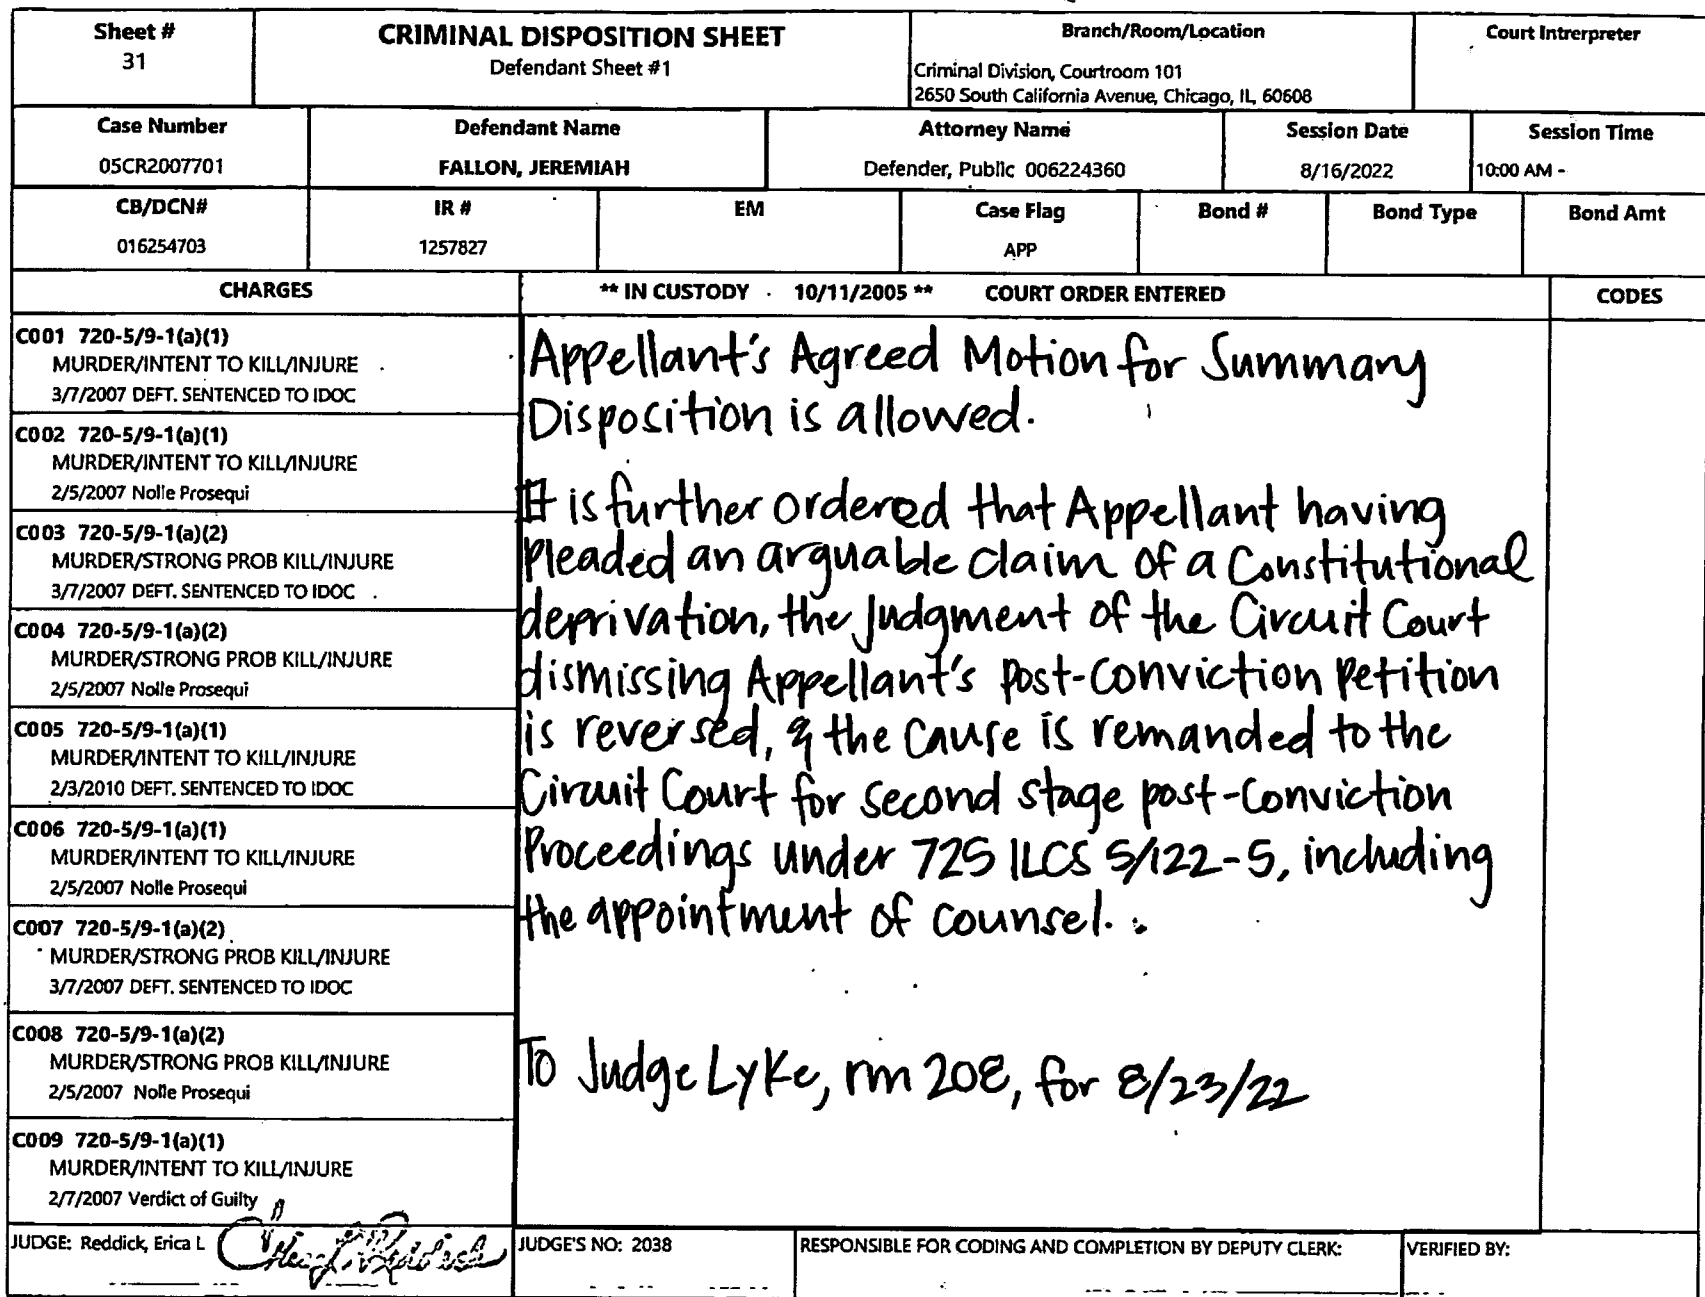 Sheet #
31
CRIMINAL DISPOSITION SHEET
Defendant Sheet #1
Branch/Room/Location
Criminal Division, Courtroom 101
2650 South California Avenue, Chicago, IL, 60608
Court Intrerpreter
Case Number
05CR2007701
Defendant Name
FALLON, JEREMIAH
Attorney Name
Defender, Public 006224360
Session Date
8/16/2022
Session Time
10:00 AM -
CB/DCN#
016254703
IR #
1257827
EM
Case Flag
APP
Bond #
Bond Type
Bond Amt
CHARGES
** IN CUSTODY - 10/11/2005 ** COURT ORDER ENTERED
CODES
C001 720-5/9-1(a)(1)
MURDER/INTENT TO KILL/INJURE
3/7/2007 DEFT. SENTENCED TO IDOC
C002 720-5/9-1(a)(1)
MURDER/INTENT TO KILL/INJURE
2/5/2007 Nolle Prosequi
C003 720-5/9-1(a)(2)
MURDER/STRONG PROB KILL/INJURE
3/7/2007 DEFT. SENTENCED TO IDOC
C004 720-5/9-1(a)(2)
MURDER/STRONG PROB KILL/INJURE
2/5/2007 Nolle Prosequi
C005 720-5/9-1(a)(1)
MURDER/INTENT TO KILL/INJURE
2/3/2010 DEFT. SENTENCED TO IDOC
C006 720-5/9-1(a)(1)
MURDER/INTENT TO KILL/INJURE
2/5/2007 Nolle Prosequi
C007 720-5/9-1(a)(2)
MURDER/STRONG PROB KILL/INJURE
3/7/2007 DEFT. SENTENCED TO IDOC
C008 720-5/9-1(a)(2)
MURDER/STRONG PROB KILL/INJURE
2/5/2007 Nolle Prosequi
C009 720-5/9-1(a)(1)
MURDER/INTENT TO KILL/INJURE
2/7/2007 Verdict of Guilty
Appellant's Agreed Motion for Summary
Disposition is allowed.
It is further ordered that Appellant having
pleaded an arguable claim of a Constitutional
deprivation, the judgment of the Circuit Court
dismissing Appellant's Post-Conviction Petition
is reversed, & the cause is remanded to the
Circuit Court for second stage post-conviction
Proceedings under 725 ILCS 5/122-5, including
the appointment of counsel.
To Judge Lyke, rm 208, for 8/23/22
JUDGE: Reddick, Erica L
JUDGE'S NO: 2038
RESPONSIBLE FOR CODING AND COMPLETION BY DEPUTY CLERK:
VERIFIED BY: